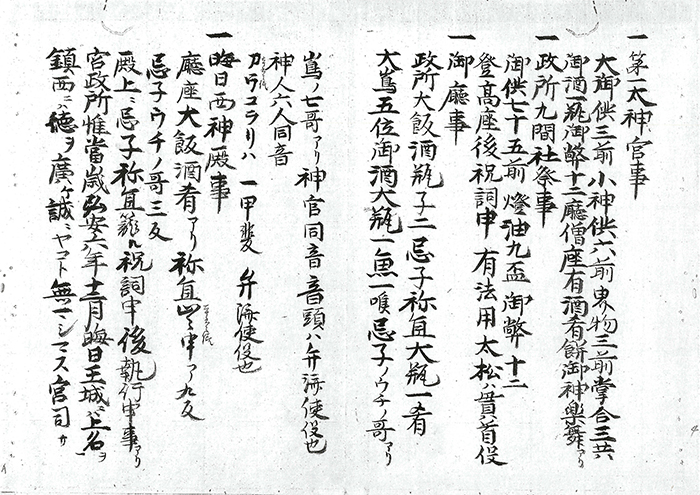 一 第一大神宮事
大御供三前 小神供六前 魚物三前掌合三共
御酒一瓶御幣十二廳僧座有酒肴餅御神樂舞アリ
一 政所九間社祭事
御供七十五前 燈油九盃 御幣十二
登高座後祝詞申 有法用太松ハ貫首役
一 御廳事
政所大飯酒瓶子二忌子祢宜大瓶一肴
大嶌五位御酒大瓶一魚一喉忌子ノウチノ哥アリ
嶌ノ七哥アリ 神官同音 音頭ハ弁済使役也
神人六人同音
カラユラリハ 一甲斐 弁済使役也
一 晦日西神殿事
廳座大飯酒肴アリ 祢宜 申アリ九反
忌子ウチノ哥三反
殿上ニ忌子祢宜籠ル祝詞申後執行申事アリ
官政所惟當歳弘安六年十二月晦日王城ニハ上名ヲ
鎮西ニハ徳ヲ廣ケ誠ニヤマト無一ニシマス宮司カ